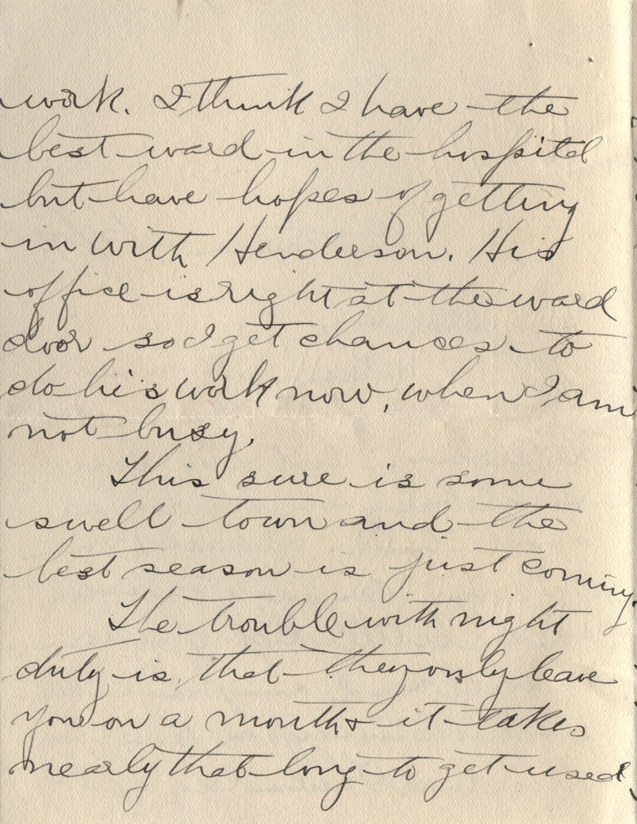 work. I think I have the
best ward in the hospital
but have hopes of getting
in with Henderson. His
office is right at the ward
door so I get chances to
do his work now, when I am
not busy.
This sure is some
swell town and the
best season is just coming.
The trouble with night
duty is, that they only leave
you on a month & it takes
nearly that long to get used